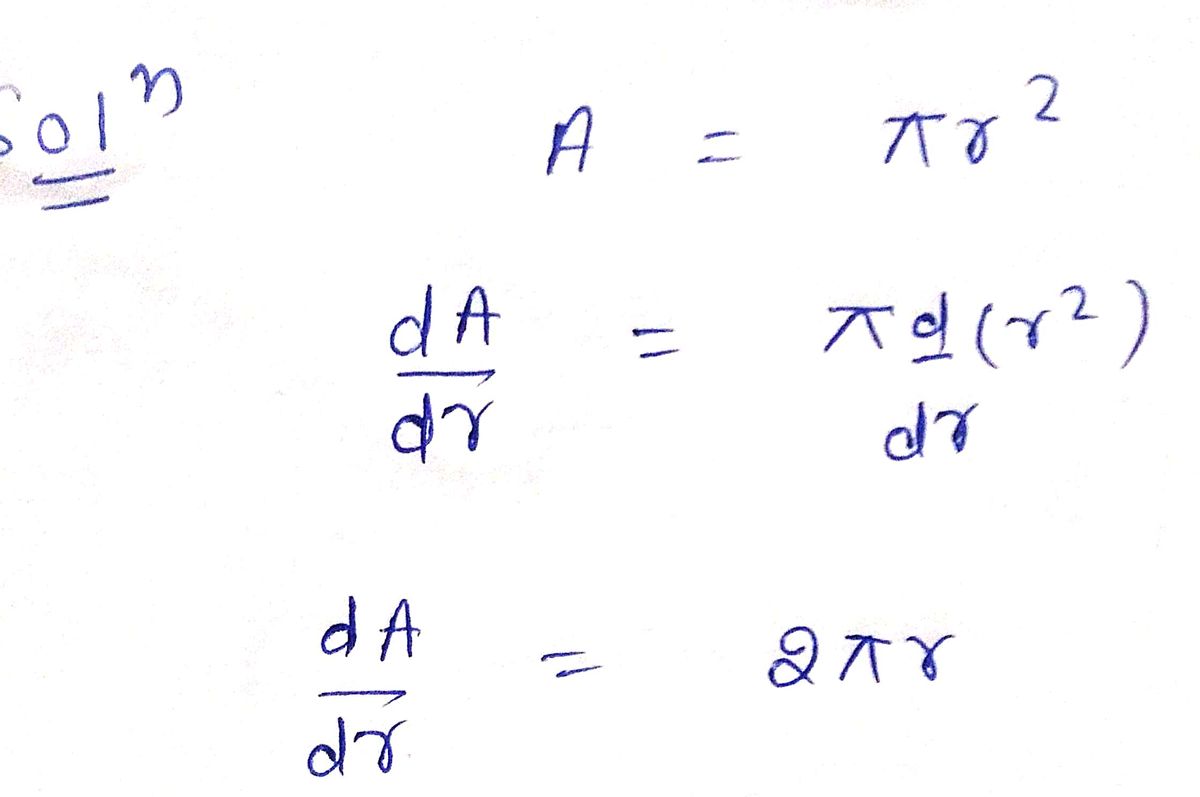 Solⁿ A = πr²
dA/dr = π d/dr (r²)
dA/dr = 2πr